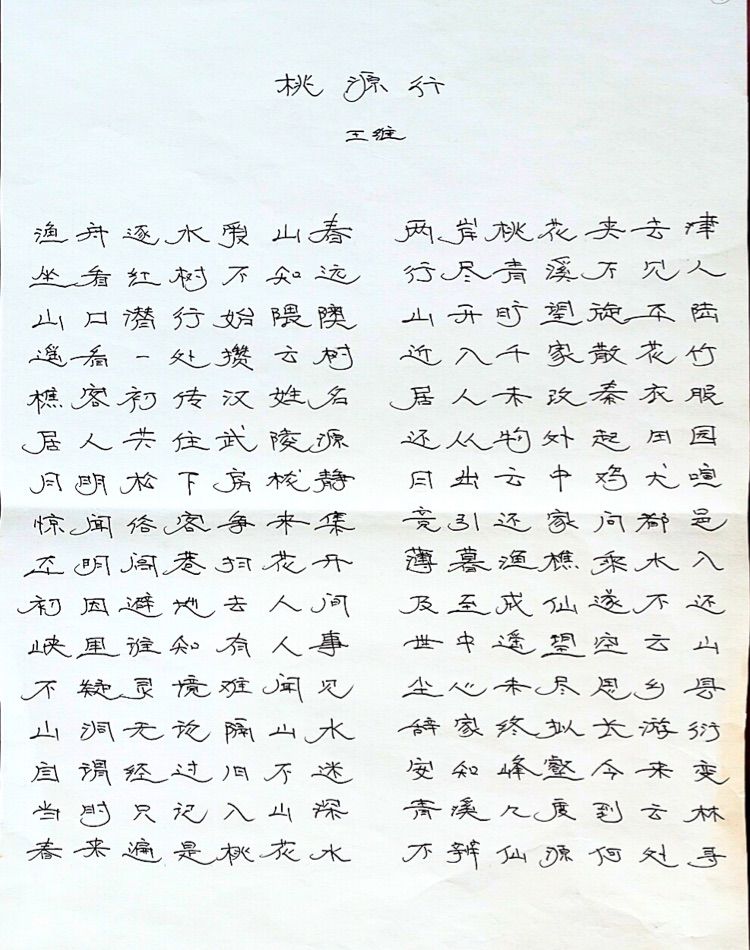 桃源行
王维
渔舟逐水爱山春 两岸桃花夹去津
坐看红树不知远 行尽青溪不见人
山口潜行始隈隩 山开旷望旋平陆
遥看一处攒云树 近入千家散花竹
樵客初传汉姓名 居人未改秦衣服
居人共住武陵源 还从物外起田园
月明松下房栊静 日出云中鸡犬喧
惊闻俗客争来集 竞引还家问都邑
平明闾巷扫花开 薄暮渔樵乘水入
初因避地去人间 及至成仙遂不还
峡里谁知有人事 世中遥望空云山
不疑灵境难闻见 尘心未尽思乡县
山洞无论隔山水 辞家终拟长游衍
自谓经过旧不迷 安知峰壑今来变
当时只记入山深 青溪几度到云林
春来遍是桃花水 不辨仙源何处寻